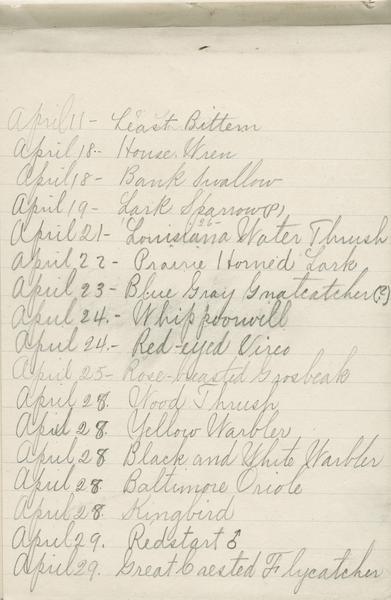 April 11 - Least Bittern
April 18 - House Wren
April 18 - Bank Swallow
April 19 - Lark Sparrow (?)
April 21 - Louisiana Water Thrush
April 22 - Prairie Horned Lark
April 23 - Blue Gray Gnatcatcher (?)
April 24. - Whippoorwill
April 24. - Red-eyed Vireo
April 25 - Rose-breasted Grosbeak
April 28. Wood Thrush
April 28. Yellow Warbler
April 28 Black and White Warbler
April 28. Baltimore Oriole
April 28. Kingbird
April 29. Redstart ♂
April 29. Great Crested Flycatcher